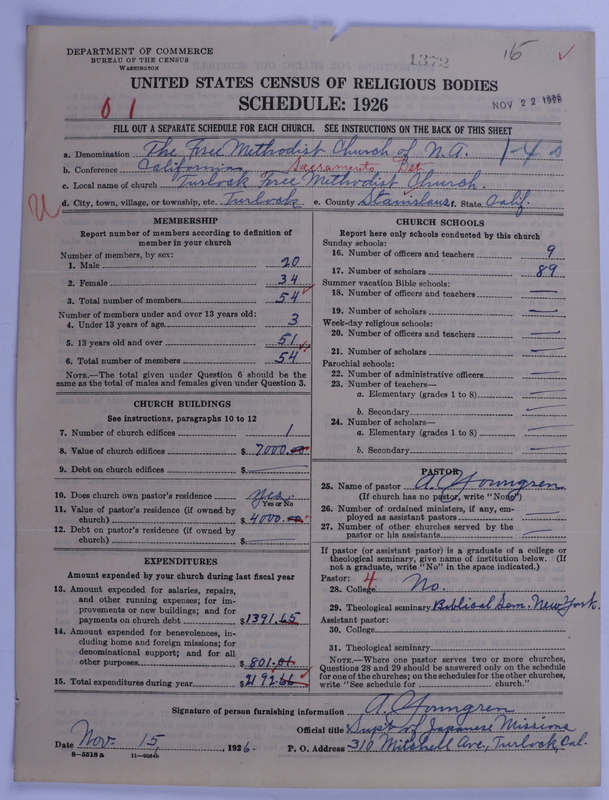 DEPARTMENT OF COMMERCE
BUREAU OF THE CENSUS
WASHINGTON
1372
15
UNITED STATES CENSUS OF RELIGIOUS BODIES
SCHEDULE: 1926
NOV 22 1926
0 1
FILL OUT A SEPARATE SCHEDULE FOR EACH CHURCH. SEE INSTRUCTIONS ON THE BACK OF THIS SHEET
a. Denomination The Free Methodist Church of N.A. 1-40
b. Conference California Sacramento Dst
c. Local name of church Turlock Free Methodist Church.
d. City, town, village, or township, etc. Turlock e. County Stanislaus f. State Calif.
MEMBERSHIP
Report number of members according to definition of member in your church
Number of members, by sex:
1. Male 20
2. Female 34
3. Total number of members 54
Number of members under and over 13 years old:
4. Under 13 years of age 3
5. 13 years old and over 51
6. Total number of members 54
NOTE.—The total given under Question 6 should be the same as the total of males and females given under Question 3.
CHURCH BUILDINGS
See instructions, paragraphs 10 to 12
7. Number of church edifices 1
8. Value of church edifices $ 7000.00
9. Debt on church edifices $
10. Does church own pastor's residence Yes.
Yes or No
11. Value of pastor's residence (if owned by church) $ 4000.00
12. Debt on pastor's residence (if owned by church) $
EXPENDITURES
Amount expended by your church during last fiscal year
13. Amount expended for salaries, repairs, and other running expenses; for improvements or new buildings; and for payments on church debt $ 1391.65
14. Amount expended for benevolences, including home and foreign missions; for denominational support; and for all other purposes $ 801.01
15. Total expenditures during year $ 2192.66
CHURCH SCHOOLS
Report here only schools conducted by this church
Sunday schools:
16. Number of officers and teachers 9
17. Number of scholars 89
Summer vacation Bible schools:
18. Number of officers and teachers
19. Number of scholars
Week-day religious schools:
20. Number of officers and teachers
21. Number of scholars
Parochial schools:
22. Number of administrative officers
23. Number of teachers—
a. Elementary (grades 1 to 8)
b. Secondary
24. Number of scholars—
a. Elementary (grades 1 to 8)
b. Secondary
PASTOR
25. Name of pastor A. Youngren
(If church has no pastor, write "None")
26. Number of ordained ministers, if any, employed as assistant pastors
27. Number of other churches served by the pastor or his assistants
If pastor (or assistant pastor) is a graduate of a college or theological seminary, give name of institution below. (If not a graduate, write "No" in the space indicated.)
Pastor: 4
28. College No.
29. Theological seminary Biblical Sem. New York.
Assistant pastor:
30. College
31. Theological seminary
NOTE.—Where one pastor serves two or more churches, Questions 28 and 29 should be answered only on the schedule for one of the churches; on the schedules for the other churches, write "See schedule for ........ church."
Signature of person furnishing information A. Youngren
Official title Supt of Japanese Missions
Date Nov. 15, , 1926. P. O. Address 310 Mitchell Ave., Turlock, Cal.
8—5518a 11—9084b